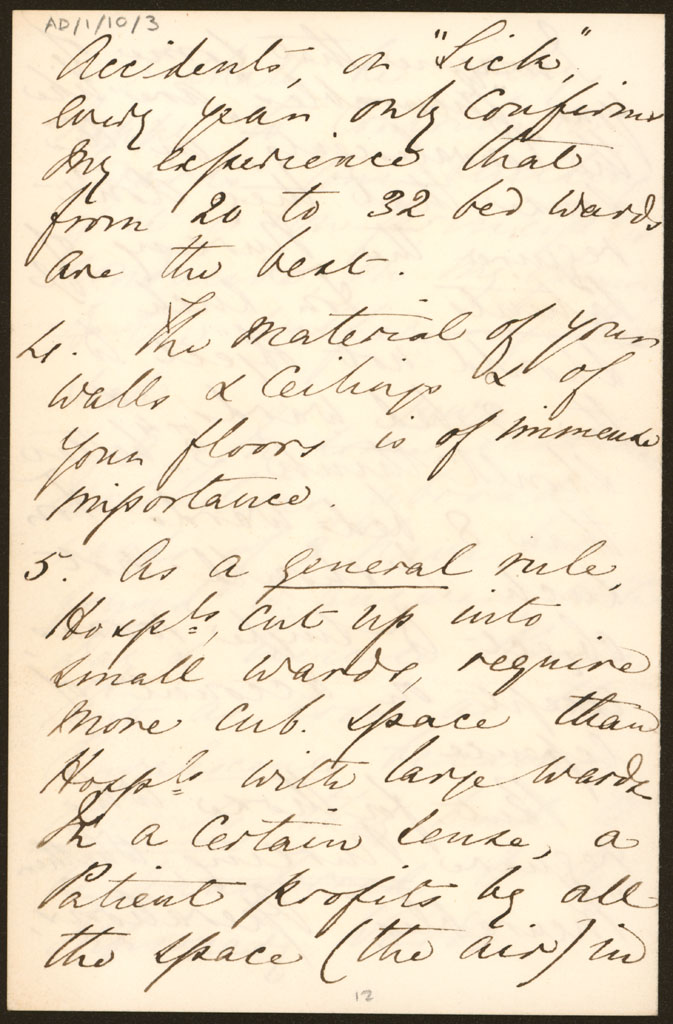 AD/1/10/3
Accidents, or "Sick",
every year only confirms
my experience that
from 20 to 32 bed wards
are the best.
4. The material of your
walls & ceilings & of
your floors is of immense
importance.
5. As a general rule,
Hospls, cut up into
small wards, require
more cub. space than
Hospls with large wards
In a certain sense, a
Patient profits by all
the space (the air) in
12